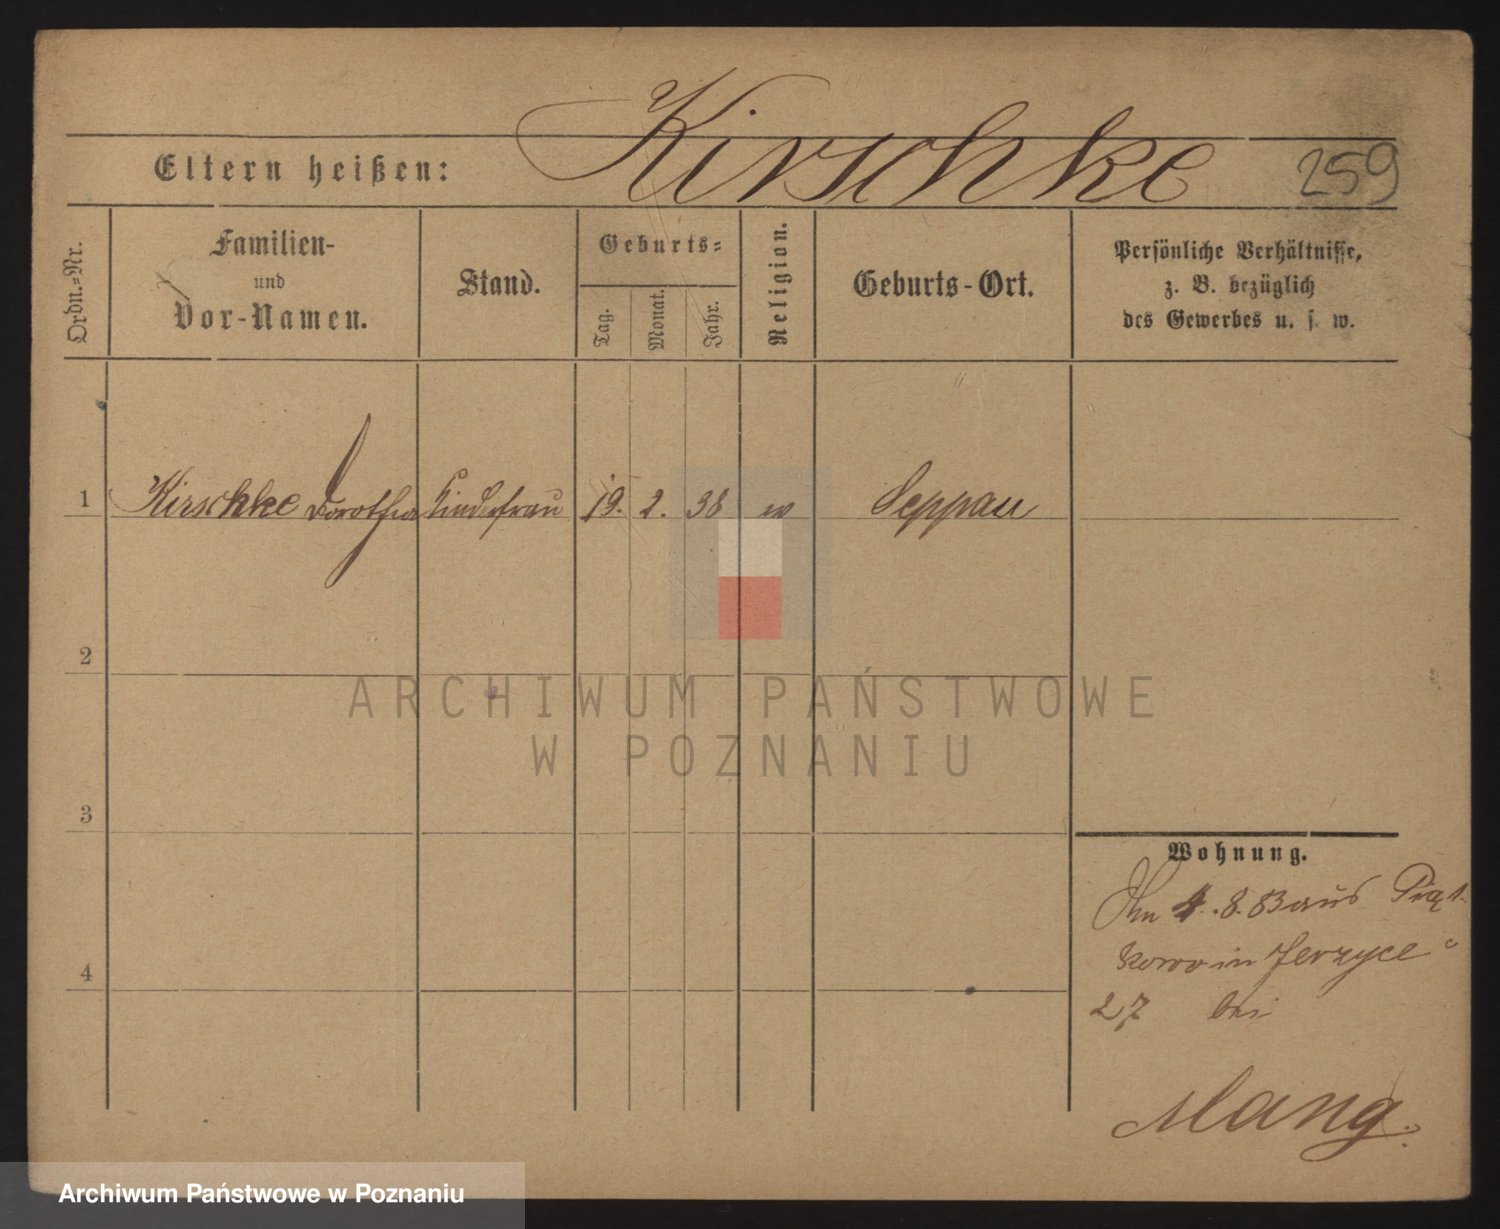 Kirschke
Eltern heißen:
259
Ordn.=Nr.
Familien-
und
Vor-Namen.
Stand.
Geburts=
Tag.
Monat.
Jahr.
Religion.
Geburts-Ort.
Persönliche Verhältnisse,
z. B. bezüglich
des Gewerbes u. s. w.
1 Kirschke Dorothea Kinderfrau 19. 2. 38 w Seppau
2
3
4
Wohnung.
Am 4. 8. 83 aus Piąt-
kowo in Jerzyce
27 bei
Mang.
ARCHIWUM PAŃSTWOWE
W POZNANIU
Archiwum Państwowe w Poznaniu